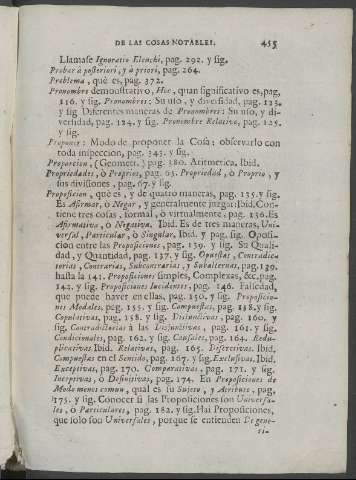 DE LAS COSAS NOTABLES. 455
Llamase Ignoratio Elenchi, pag. 292. y sig.
Probar à posteriori, y à priori, pag. 264.
Problema, què es, pag. 372.
Pronombre demonstrativo, Hic, quan significativo es, pag.
116. y sig. Pronombres: Su uso, y diversidad, pag. 123.
y sig. Diferentes maneras de Pronombres: Su uso, y di-
versidad, pag. 124. y sig. Pronombre Relativo, pag. 125.
y sig.
Proponer: Modo de proponer la Cosa: observarlo con
toda inspeccion, pag. 343. y sig.
Proporcion, (Geometr.) pag. 380. Aritmetica. Ibid.
Propriedades, ò Proprios, pag. 65. Propriedad, ò Proprio, y
sus divisiones, pag. 67. y sig.
Proposicion, què es, y de quatro maneras, pag. 135. y sig.
Es Afirmar, ò Negar, y generalmente juzgar: Ibid. Con-
tiene tres cosas, formal, ò virtualmente, pag. 136. Es
Afirmativa, ò Negativa. Ibid. Es de tres maneras, Uni-
versal, Particular, ò Singular, Ibid. y pag. sig. Oposi-
cion entre las Proposiciones, pag. 139. y sig. Su Quali-
dad, y Quantidad, pag. 137. y sig. Opuestas, Contradica-
torias, Contrarias, Subcontrarias, y Subalternas, pag. 139.
hasta la 143. Proposiciones simples, Complexas, &c. pag.
142. y sig. Proposiciones Incidentes, pag. 146. Falsedad,
que puede haver en ellas, pag. 150. y sig. Proposicio-
nes Modales, pag. 155. y sig. Compuestas, pag. 158. y sig.
Copulativas, pag. 158. y sig. Disiuntivas, pag. 160. y
sig. Contradictorias à las Disjuntivas, pag. 161. y sig.
Condicionales, pag. 162. y sig. Causales, pag. 164. Redu-
plicativas. Ibid. Relativas, pag. 165. Discretivas. Ibid.
Compuestas en el Sentido, pag. 167. y sig. Exclusivas. Ibid.
Exceptivas, pag. 170. Comparativas, pag. 171. y sig.
Inceptivas, ò Desinitivas, pag. 174. En Proposiciones de
Modo menos comun, qual es su Sujeto, y Atributo, pag.
175. y sig. Conocer si las Proposiciones son Universa-
les, ò Particulares, pag. 182. y sig. Hai Proposiciones,
que solo son Universales, porque se entienden De gene-